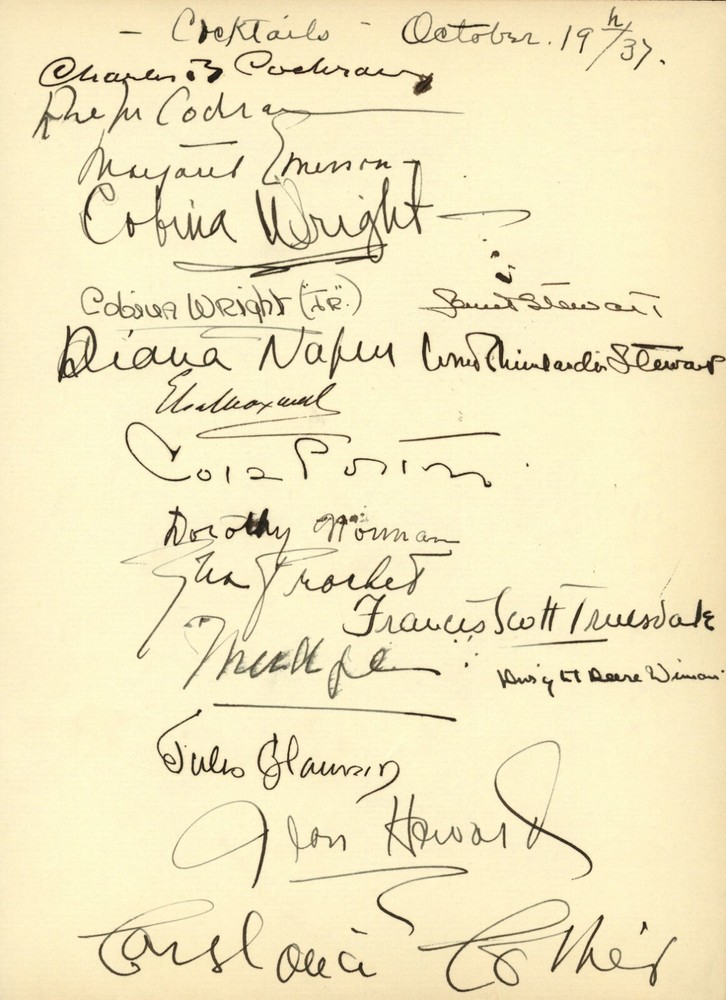 - Cocktails - October. 19th/37.
Charles B Cochran
Cochran
Margaret Emerson -
Cobina Wright
Cobina Wright ("JR.") Janet Stewart
Diana Napier Stewart
Elsa Maxwell
Cole Porter.
Dorothy Norman
Francis Scott Truesdale
Dwight Deere Wiman.
Jules Glaenzer
Jean Howard
Constance Collier